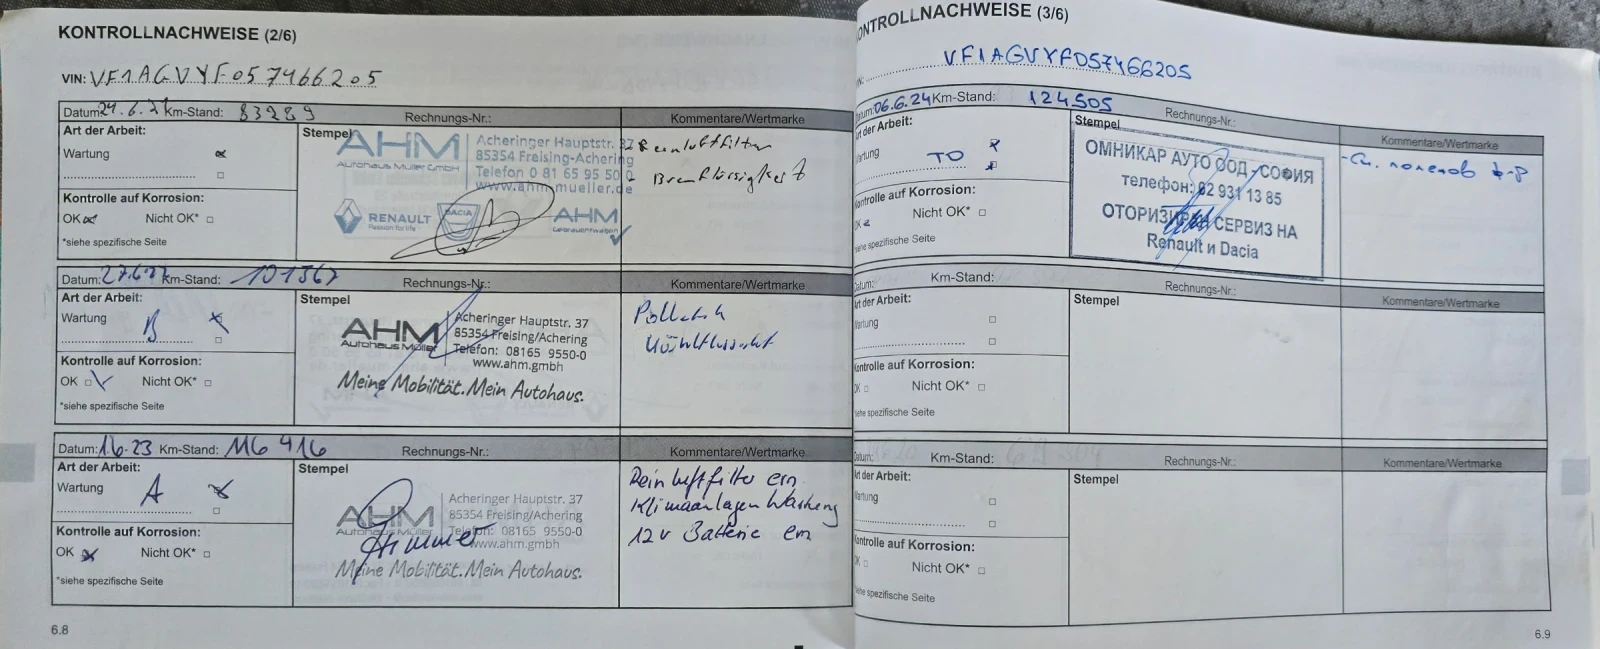 KONTROLLNACHWEISE (2/6)
VIN: VF1AGVYF057466205
Datum: 21.6.21 Km-Stand: 83289 Rechnungs-Nr.: Kommentare/Wertmarke
Art der Arbeit:
Wartung
Kontrolle auf Korrosion:
OK Nicht OK*
*siehe spezifische Seite
Stempel
AHM
Autohaus Müller GmbH
Acheringer Hauptstr. 37
85354 Freising-Achering
Telefon 0 81 65 95 50 0
www.ahm-mueller.de
RENAULT
Passion for life
DACIA
AHM
Gebrauchtwagen
Reinluftfilter
- Bremsflüssigkeit
Datum: 27.6.22 Km-Stand: 101367 Rechnungs-Nr.: Kommentare/Wertmarke
Art der Arbeit:
Wartung B
Kontrolle auf Korrosion:
OK Nicht OK*
*siehe spezifische Seite
Stempel
AHM
Autohaus Müller
Acheringer Hauptstr. 37
85354 Freising/Achering
Telefon: 08165 9550-0
www.ahm.gmbh
Meine Mobilität. Mein Autohaus.
Datum: 1.6.23 Km-Stand: 116 416 Rechnungs-Nr.: Kommentare/Wertmarke
Art der Arbeit:
Wartung A
Kontrolle auf Korrosion:
OK Nicht OK*
*siehe spezifische Seite
Stempel
AHM
Autohaus Müller
Acheringer Hauptstr. 37
85354 Freising/Achering
Telefon: 08165 9550-0
www.ahm.gmbh
Meine Mobilität. Mein Autohaus.
Reinluftfilter ern
Klimaanlagen Wartung
12v Batterie ern
6.8
KONTROLLNACHWEISE (3/6)
VIN: VF1AGVYF057466205
Datum: 06.6.24 Km-Stand: 124505 Rechnungs-Nr.: Kommentare/Wertmarke
Art der Arbeit:
Wartung TO
Kontrolle auf Korrosion:
OK Nicht OK*
*siehe spezifische Seite
Stempel
ОМНИКАР АУТО ООД-СОФИЯ
телефон: 02 931 13 85
ОТОРИЗИРАН СЕРВИЗ НА
Renault и Dacia
- См. поленов ф-р
Datum: Km-Stand: Rechnungs-Nr.: Kommentare/Wertmarke
Art der Arbeit:
Wartung
Kontrolle auf Korrosion:
OK Nicht OK*
*siehe spezifische Seite
Stempel
Datum: Km-Stand: Rechnungs-Nr.: Kommentare/Wertmarke
Art der Arbeit:
Wartung
Kontrolle auf Korrosion:
OK Nicht OK*
*siehe spezifische Seite
Stempel
6.9